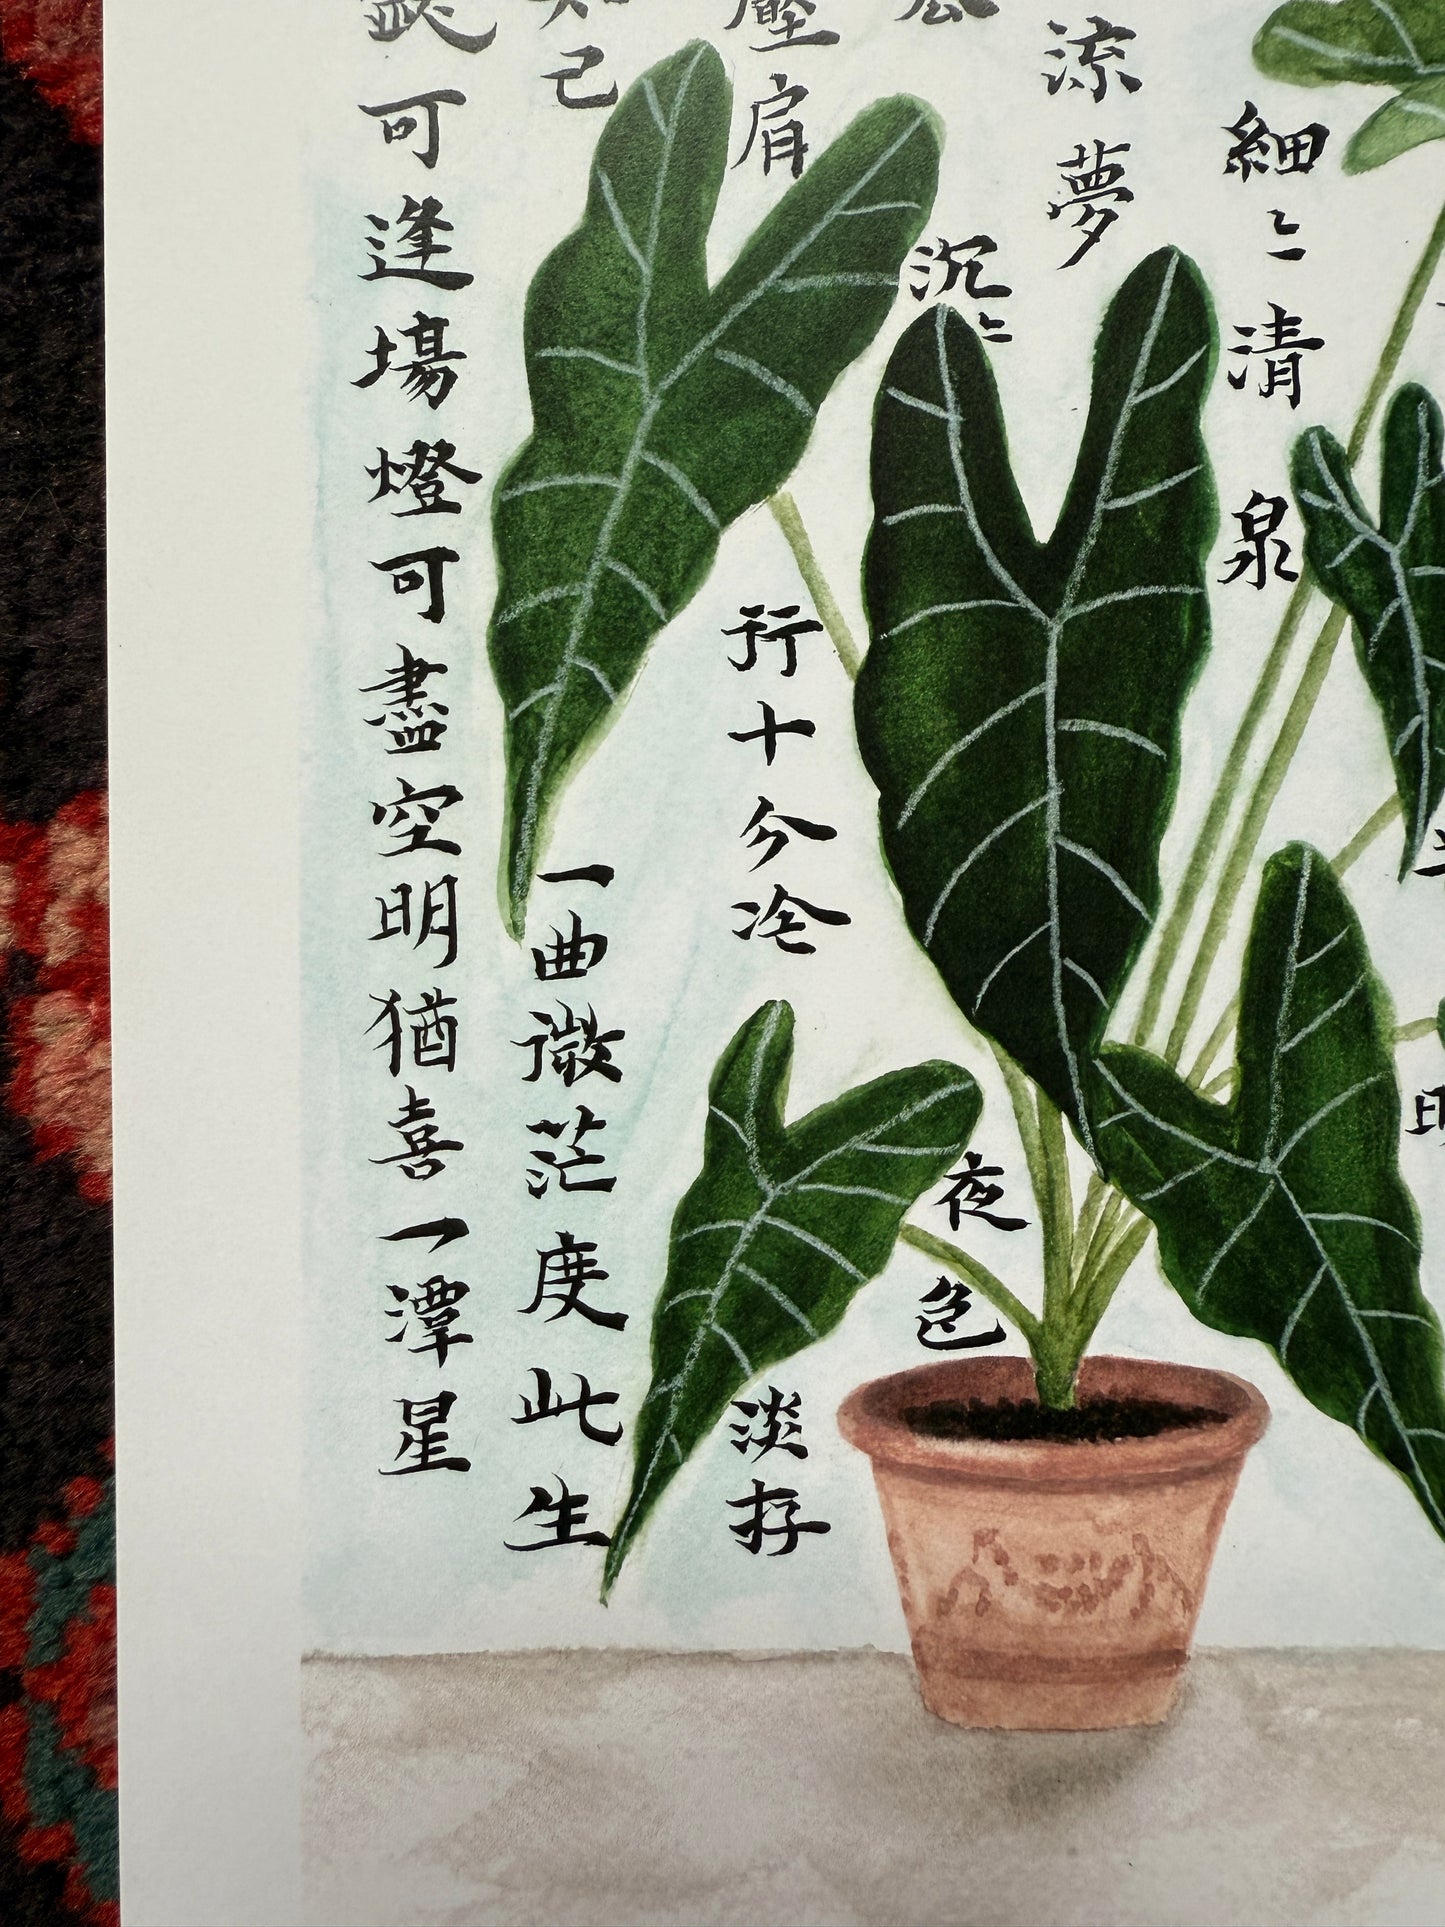 細〻清泉
涼夢
沉〻夜色
壓肩行十分冷淡存
己一曲微茫度此生
可逢場燈可盡空明猶喜一潭星